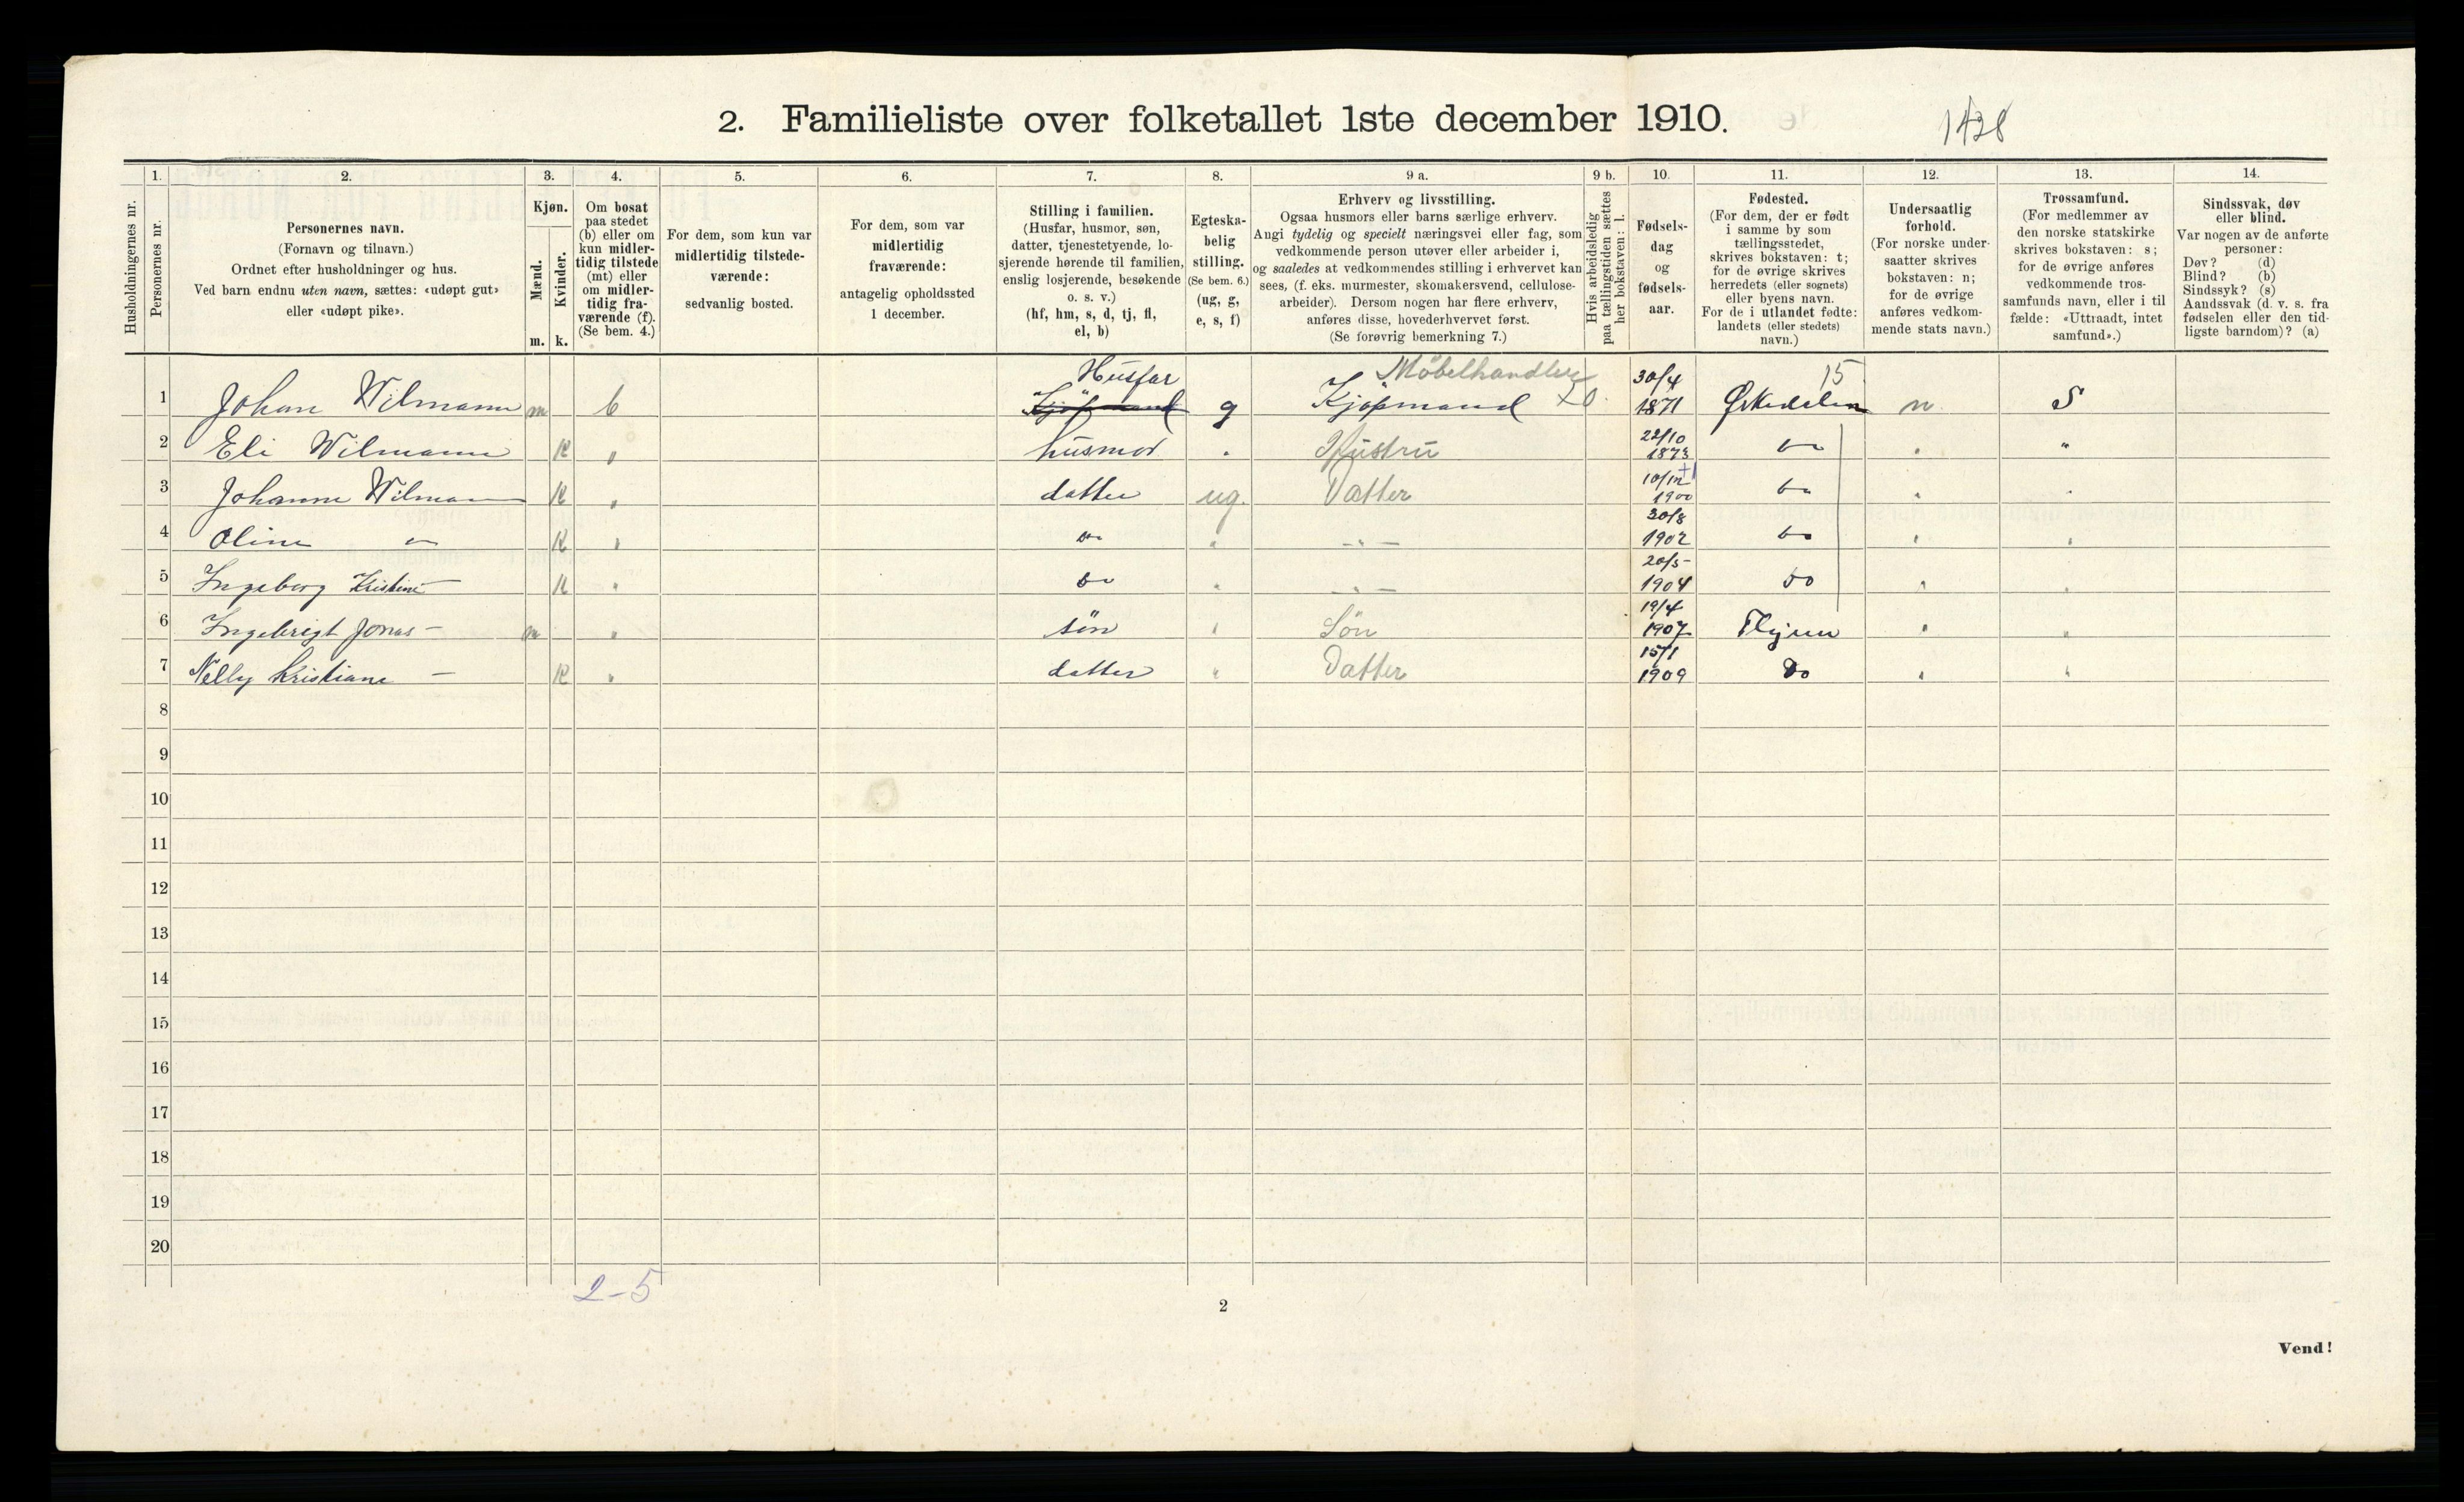 2. Familieliste over folketallet 1ste december 1910.
1428
Husholdningernes nr.
1.
Personernes nr.
2.
Personernes navn.
(Fornavn og tilnavn.)
Ordnet efter husholdninger og hus.
Ved barn endnu uten navn, sættes: «udøpt gut»
eller «udøpt pike».
3.
Kjøn.
Mænd.
Kvinder.
m.
k.
4.
Om bosat
paa stedet
(b) eller om
kun midler-
tidig tilstede
(mt) eller
om midler-
tidig fra-
værende (f).
(Se bem. 4.)
5.
For dem, som kun var
midlertidig tilstede-
værende:
sedvanlig bosted.
6.
For dem, som var
midlertidig
fraværende:
antagelig opholdssted
1 december.
7.
Stilling i familien.
(Husfar, husmor, søn,
datter, tjenestetyende, lo-
sjerende hørende til familien,
enslig losjerende, besøkende
o. s. v.)
(hf, hm, s, d, tj, fl,
el, b)
8.
Egteska-
belig
stilling.
(Se bem. 6.)
(ug, g,
e, s, f)
9 a.
Erhverv og livsstilling.
Ogsaa husmors eller barns særlige erhverv.
Angi tydelig og specielt næringsvei eller fag, som
vedkommende person utøver eller arbeider i,
og saaledes at vedkommendes stilling i erhvervet kan
sees, (f. eks. murmester, skomakersvend, cellulose-
arbeider). Dersom nogen har flere erhverv,
anføres disse, hovederhvervet først.
(Se forøvrig bemerkning 7.)
9 b.
Hvis arbeidsledig
paa tællingstiden sættes
her bokstaven: l.
10.
Fødsels-
dag
og
fødsels-
aar.
11.
Fødested.
(For dem, der er født
i samme by som
tællingsstedet,
skrives bokstaven: t;
for de øvrige skrives
herredets (eller sognets)
eller byens navn.
For de i utlandet fødte:
landets (eller stedets)
navn.)
12.
Undersaatlig
forhold.
(For norske under-
saatter skrives
bokstaven: n;
for de øvrige
anføres vedkom-
mende stats navn.)
13.
Trossamfund.
(For medlemmer av
den norske statskirke
skrives bokstaven: s;
for de øvrige anføres
vedkommende tros-
samfunds navn, eller i til
fælde: «Uttraadt, intet
samfund».)
14.
Sindssvak, døv
eller blind.
Var nogen av de anførte
personer:
Døv? (d)
Blind? (b)
Sindssyk? (s)
Aandssvak (d. v. s. fra
fødselen eller den tid-
ligste barndom)? (a)
Husfar Møbelhandler 30/4 15
1 Johan Wilmann m b Kjöpmand g Kjöpmand 1871 Ørkedalen n S
22/10
2 Eli Wilmann K " husmor " Hustru 1873 do " "
10/12
3 Johanne Wilmann K " datter ug. Datter 1900 do " "
30/8
4 Oline do K " do " -"- 1902 do " "
20/5
5 Ingeborg Kristine — K " do " -"- 1904 do " "
19/4
6 Ingebrigt Jonas — m " sön " Sön 1907 Thjem " "
15/1
7 Nelly Kristiane — K " datter " Datter 1909 Do " "
8
9
10
11
12
13
14
15
16
17
18
19
20
2-5
2
Vend!